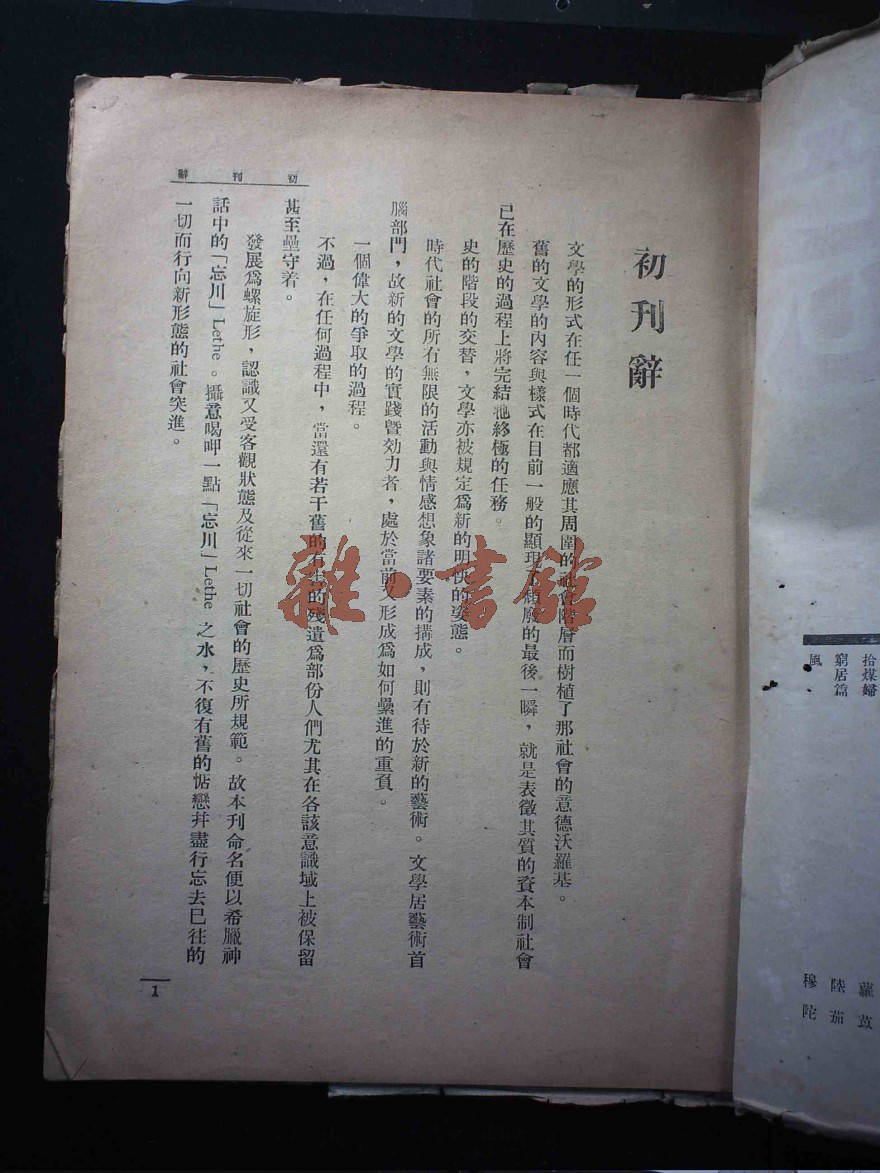 拾煤婦
窮居篇
風
蘿茲
陸茹
穆陀
初刊辭
初刊辭
文學的形式在任一個時代都適應其周圍的社會階層而樹植了那社會的意德沃羅基。
舊的文學的內容與樣式在目前一般的顯現了頹廢的最後一瞬，就是表徵其質的資本制社會
已在歷史的過程上將完結牠終極的任務。
史的階段的交替，文學亦被規定爲新的明快的姿態。
時代社會的所有無限的活動與情感想象諸要素的搆成，則有待於新的藝術。文學居藝術首
腦部門，故新的文學的實踐曁効力者，處於當前又形成爲如何纍進的重負。
一個偉大的爭取的過程。
不過，在任何過程中，當還有若干舊的有害的殘遺爲部份人們尤其在各該意識域上被保留
甚至壘守着。
發展爲螺旋形，認識又受客觀狀態及從來一切社會的歷史所規範。故本刊命名便以希臘神
話中的「忘川」Lethe。攝意喝呷一點「忘川」Lethe 之水，不復有舊的惦戀幷盡行忘去已往的
一切而行向新形態的社會突進。
1
雜·書館